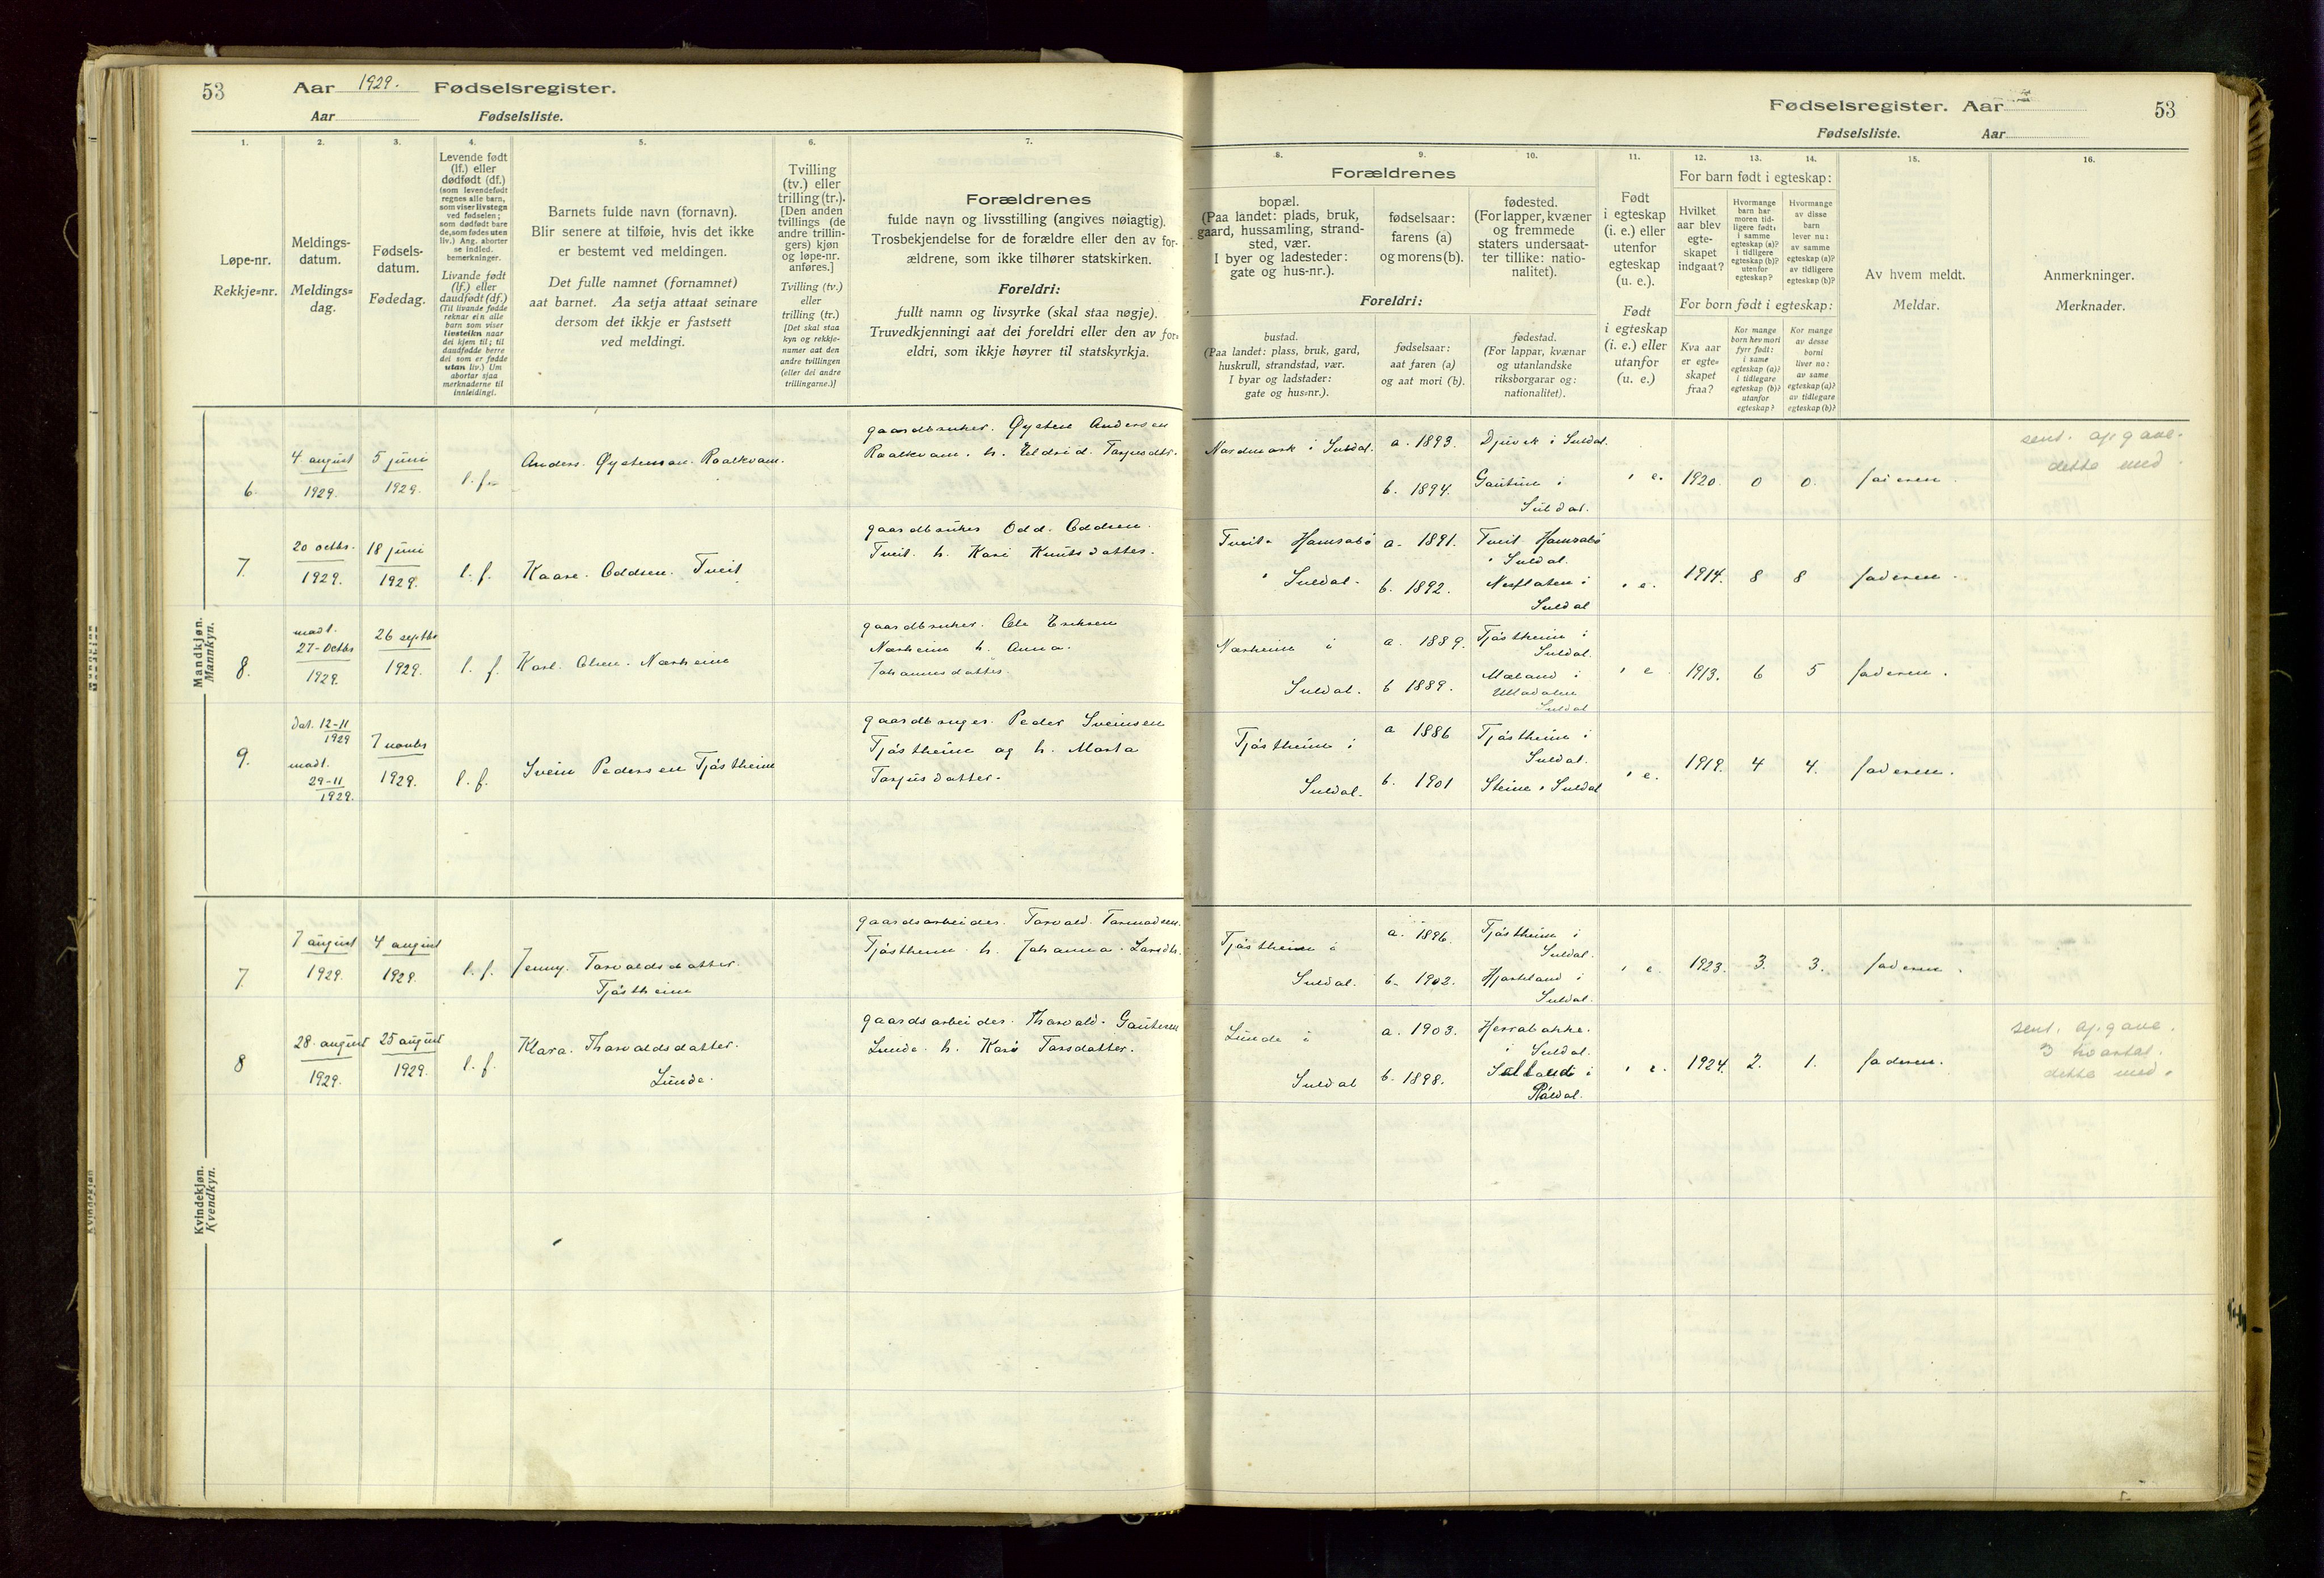 53 Aar 1929. Fødselsregister.
Aar Fødselsliste.
Fødselsregister. Aar 53
Fødselsliste. Aar
1. 2. 3. 4. 5. 6. 7.
8. 9. 10. 11. 12. 13. 14. 15. 16.
Løpe-nr.
Rekkje=nr.
Meldings-
datum.
Meldings=
dag.
Fødsels-
datum.
Fødedag.
Levende født
(lf.) eller
dødfødt (df.)
(som levendefødt
regnes alle barn,
som viser livstegn
ved fødselen;
som dødfødt bare
de, som fødes uten
liv.) Ang. aborter
se indled.
bemerkninger.
Livande født
(lf.) eller
daudfødt (df.)
(Til livande fødde
reknar ein alle
born som viser
livsteikn naar
dei kjem til; til
daudfødde berre
dei som er fødde
utan liv.) Um
abortar sjaa
merknaderne til
innleidingi.
Barnets fulde navn (fornavn).
Blir senere at tilføie, hvis det ikke
er bestemt ved meldingen.
Det fulle namnet (fornamnet)
aat barnet. Aa setja attaat seinare
dersom det ikkje er fastsett
ved meldingi.
Tvilling
(tv.) eller
trilling (tr.).
[Den anden
tvillings (de
andre trillin-
gers) kjøn
og løpe-nr.
anføres.]
Tvilling (tv.)
eller
trilling (tr.)
[Det skal staa
kyn og rekkje-
numer aat den
andre tvillingen
(eller dei andre
trillingarne.)]
Forældrenes
fulde navn og livsstilling (angives nøiagtig).
Trosbekjendelse for de forældre eller den av for-
ældrene, som ikke tilhører statskirken.
Foreldri:
fullt namn og livsyrke (skal staa nøgje).
Truvedkjenningi aat dei foreldri eller den av for=
eldri, som ikkje høyrer til statskyrkja.
Forældrenes
bopæl.
(Paa landet: plads, bruk,
gaard, hussamling, strand-
sted, vær.
I byer og ladesteder:
gate og hus-nr.).
fødselsaar:
farens (a)
og morens (b).
fødested.
(For lapper, kvæner
og fremmede
staters undersaat-
ter tillike: natio-
nalitet).
Foreldri:
bustad.
(Paa landet: plass, bruk, gard,
huskrull, strandstad, vær.
I byar og ladstader:
gate og hus=nr.).
fødselsaar:
aat faren (a)
og aat mori (b).
fødestad.
(For lappar, kvænar
og utanlandske
riksborgarar og:
nationalitet).
Født
i egteskap
(i. e.) eller
utenfor
egteskap
(u. e.).
Født
i egteskap
(i. e.) eller
utanfor
(u. e.)
For barn født i egteskap:
Hvilket
aar blev
egte-
skapet
indgaat?
Hvormange
barn har
moren tid-
ligere født:
i samme
egteskap (a)?
i tidligere
egteskap (b)?
utenfor
egteskap?
Hvormange
av disse
barn
lever nu:
av samme
egteskap (a)?
av tidligere
egteskap (b)?
For born født i egteskap:
Kva aar
er egte=
skapet
fraa?
Kor mange
born hev mori
fyrr født:
i same
egteskap (a)?
i tidlegare
egteskap (b)?
utanfor
egteskap?
Kor mange
av desse
borni
liver no:
av same
egteskap (a)?
av tidlegare
egteskap (b)?
Av hvem meldt.
Meldar.
Anmerkninger.
Merknader.
Mandkjøn.
Mannkyn.
6. 4. august 1929. 5 juni 1929. l. f. Anders. Øystensen. Roalkvam.
gaardbruker. Øysten Andersen
Roalkvam. h. Eldrid. Tarjusdtr.
Nordmork i Suldal. a. 1893. Djuvik i Suldal.
b. 1894. Gautun i
Suldal.
i e. 1920. 0 0. faderen.
sent. opgave.
dette med
7. 20 octbr. 1929. 18 juni 1929. l. f. Kaare. Oddsen. Tveit
gaardbruker Odd. Oddsen.
Tveit. h. Kari Knutsdatter.
Tveit. Hamrabø
i Suldal.
a. 1891. Tveit Hamrabø
i Suldal.
b. 1892. Nesflaten i
Suldal
i e. 1914. 8 8 faderen.
8. madt. 27-octbr 1929. 26 septbr 1929. l. f. Karl. Olsen. Nærheim
gaardbruker. Ole Eriksen
Nærheim h. Anna.
Johannesdatter.
Nærheim i
Suldal.
a. 1889. Tjøstheim i
Suldal.
b 1889. Mæland i
Ulladalen
Suldal
i e. 1913. 6 5 faderen.
9. dat. 12-11 1929 madt. 29-11 1929. 7 novbr 1929. l. f. Svein Pedersen Tjøstheim
gaardbruger. Peder Sveinsen
Tjøstheim og h. Marta
Tarjusdatter.
Tjøstheim i
Suldal.
a 1886 Tjøstheim i
Suldal.
b. 1901 Steine i Suldal
i e. 1919. 4 4. faderen.
Kvindekjøn.
Kvendkyn.
7 7 august 1929. 4 august 1929. l. f. Jenny. Torvaldsdatter.
Tjøstheim
gaardsarbeider. Torvald. Tormodsen.
Tjøstheim. h. Johanna. Larsdtr.
Tjøstheim i
Suldal.
a. 1896. Tjøstheim i
Suldal.
b. 1902. Hjorteland i
Suldal.
i e. 1923. 3. 3. faderen.
8 28. august 1929. 25 august 1929. l. f. Klara. Thorvaldsdatter.
Lunde.
gaardsarbeider. Thorvald. Gautesen
Lunde. h. Kari Torsdatter.
Lunde i
Suldal
a. 1903. Herrabakke.
i Suldal.
b. 1898. i
Røldal.
i e. 1924. 2. 1. faderen.
sent. opgave.
3 kvartal.
dette med.